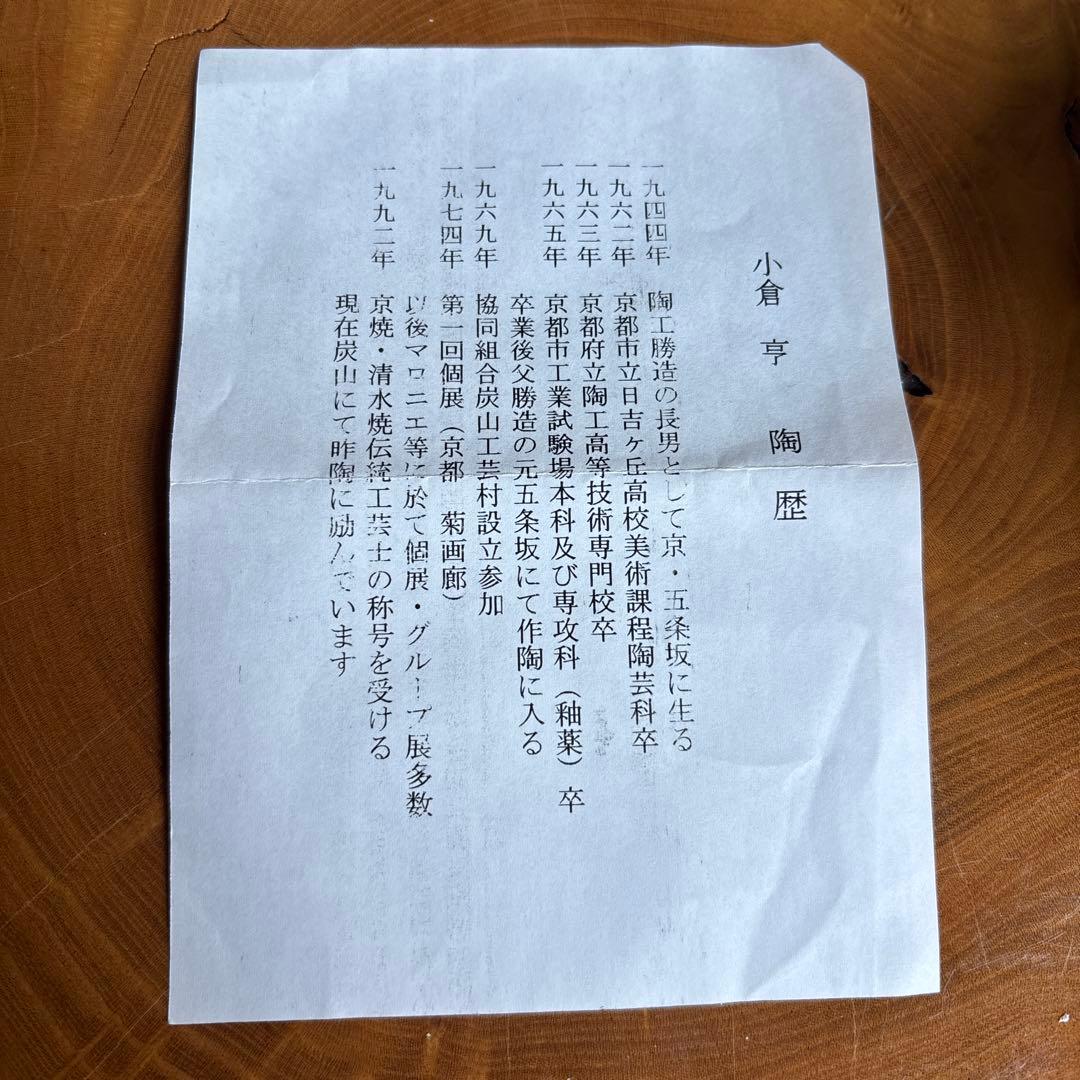 小倉 亨 陶歴
一九四四年 陶工勝造の長男として京・五条坂に生る
一九六二年 京都市立日吉ヶ丘高校美術課程陶芸科卒
一九六三年 京都府立陶工高等技術専門校卒
一九六五年 京都市工業試験場本科及び専攻科（釉薬）卒
卒業後父勝造の元五条坂にて作陶に入る
一九六九年 協同組合炭山工芸村設立参加
一九七四年 第一回個展（京都 菊画廊）
以後マロニエ等に於て個展・グループ展多数
一九九二年 京焼・清水焼伝統工芸士の称号を受ける
現在炭山にて昨陶に励んでいます